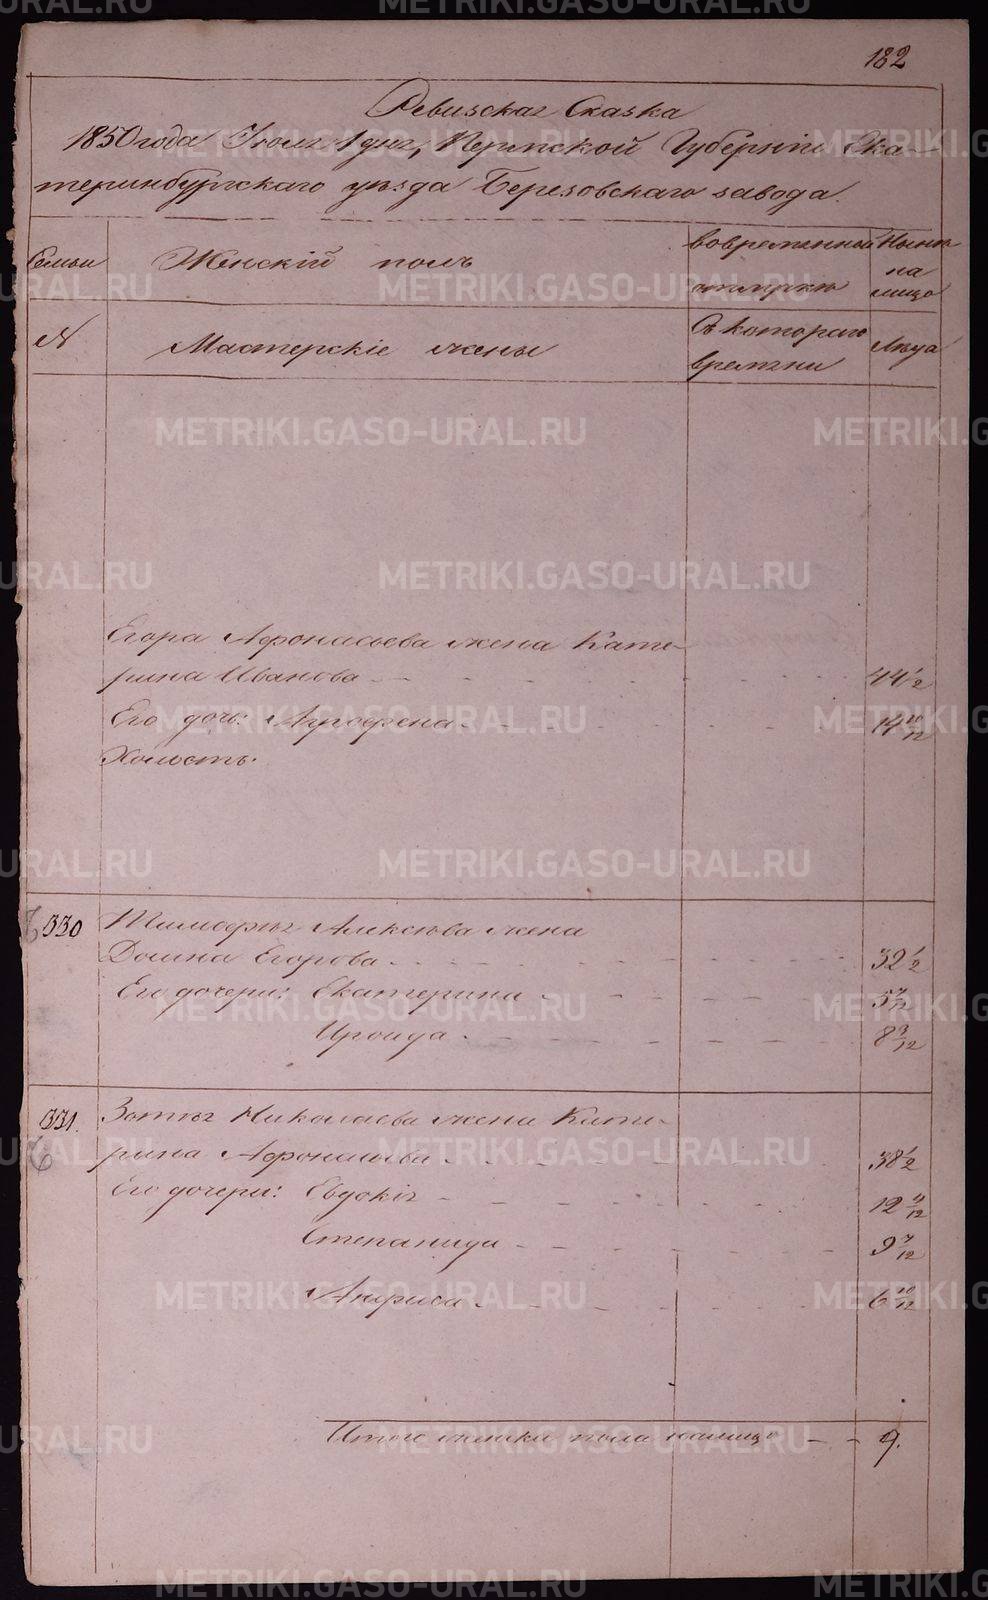 182
Ревизская Сказка
1850 года Іюля 1 дня, Пермской Губерніи Ека-
теринбургскаго уѣзда Березовскаго завода.
Семьи
Женскій полъ
во временной
отлучкѣ
Нынѣ
на
лицо
№
Мастерскіе жены
Съ котораго
времени
Лѣта
Егора Афонасьева жена Кате-
рина Иванова 44 1/2
Его дочь: Агрофена 14 10/12
Холостъ.
330 Тимофея Алексѣева жена
Домна Егорова 32 1/2
Его дочери: Екатерина 5 7/12
Ироида 8 3/12
331. Зотѣя Николаева жена Кате-
рина Афонасьева 38 1/2
Его дочери: Евдокія 12 4/12
Степанида 9 7/12
Анфиса 6 10/12
Итого женска пола налицо 9.
METRIKI.GASO-URAL.RU